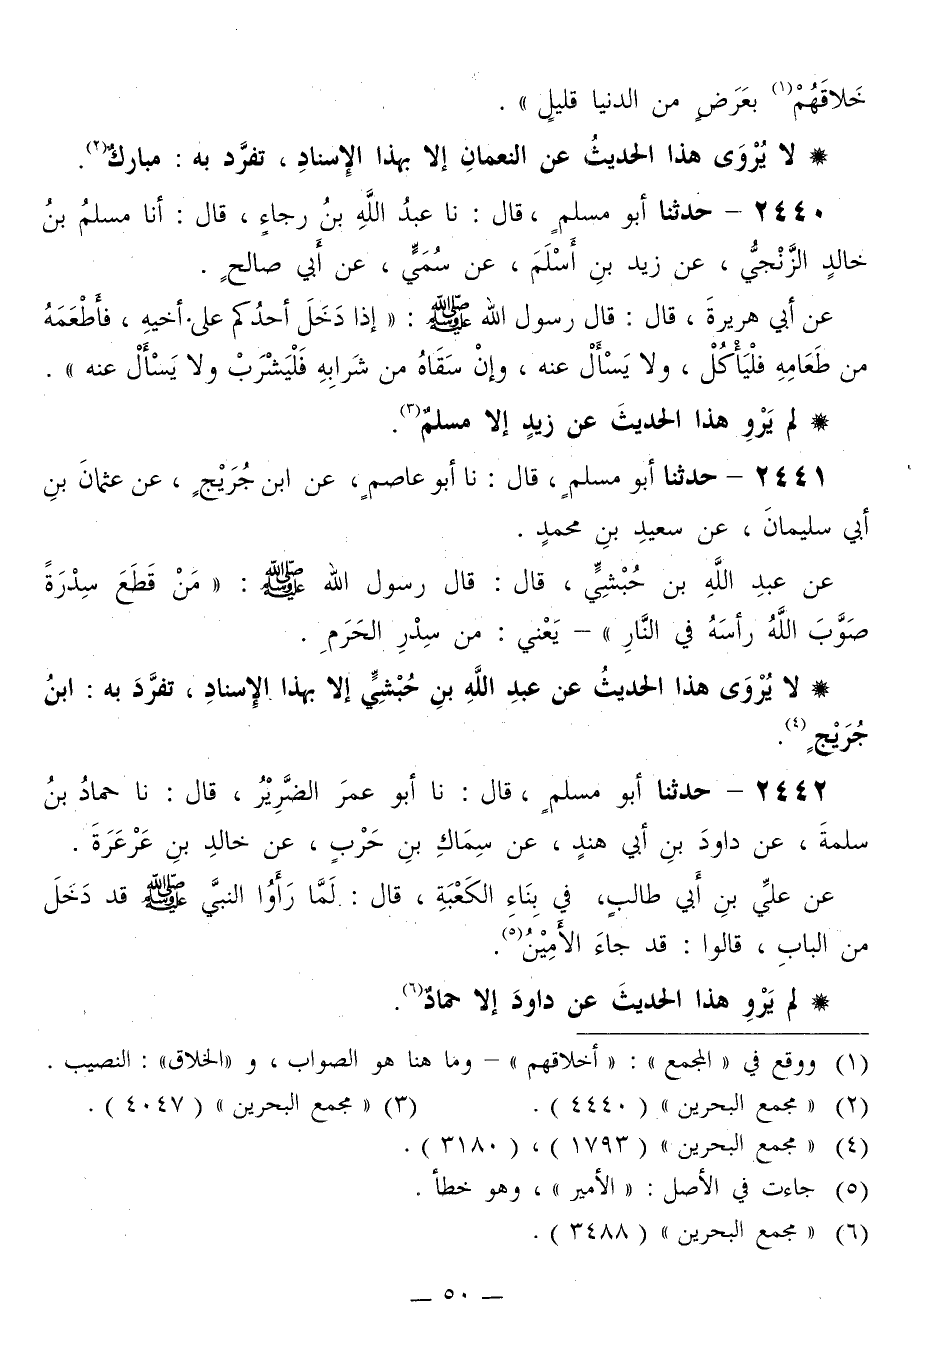 خَلاقَهُمْ(١) بعَرَضٍ من الدنيا قليلٍ » .
* لا يُرْوَى هذا الحديثُ عن النعمانِ إلا بهذا الإسنادِ ، تفرَّد به : مباركٌ(٢).
٢٤٤٠ – حدثنا أبو مسلمٍ ، قال : نا عبدُ اللَّهِ بنُ رجاءٍ ، قال : أنا مسلمُ بنُ
خالدٍ الزَّنْجيُّ ، عن زيد بنِ أَسْلَمَ ، عن سُمَيٍّ ، عن أَبي صالحٍ .
عن أبي هريرةَ ، قال : قال رسول الله ﷺ : « إذا دَخَلَ أحدُكم على أخيهِ ، فأَطْعَمَهُ
من طَعَامِهِ فلْيَأْكُلْ ، ولا يَسْأَلْ عنه ، وإنْ سَقَاهُ من شرابِهِ فَلْيَشْرَبْ ولا يَسْأَلْ عنه » .
* لم يَرْوِ هذا الحديثَ عن زيدٍ إلا مسلمٌ(٣).
٢٤٤١ – حدثنا أبو مسلمٍ ، قال : نا أبو عاصمٍ ، عن ابن جُرَيْجٍ ، عن عثمانَ بنِ
أبي سليمانَ ، عن سعيدِ بنِ محمدٍ .
عن عبدِ اللَّهِ بن حُبْشيٍّ ، قال : قال رسول الله ﷺ : « مَنْ قَطَعَ سِدْرَةً
صَوَّبَ اللَّهُ رأسَهُ في النَّارِ » – يَعْني : من سِدْرِ الحَرَمِ .
* لا يُرْوَى هذا الحديثُ عن عبدِ اللَّهِ بنِ حُبْشيٍّ إلا بهذا الإسنادِ ، تفرَّدَ به : ابنُ
جُرَيْجٍ(٤).
٢٤٤٢ – حدثنا أبو مسلمٍ ، قال : نا أبو عمرَ الضَّرِيْرُ ، قال : نا حمادُ بنُ
سلمةَ ، عن داودَ بنِ أبي هندٍ ، عن سِمَاكِ بنِ حَرْبٍ ، عن خالدِ بنِ عَرْعَرَةَ .
عن عليِّ بنِ أَبي طالبٍ، في بِنَاءِ الكَعْبَةِ ، قال : لَمَّا رَأَوُا النبيَّ ﷺ قد دَخَلَ
من البابِ ، قالوا : قد جاءَ الأَمِيْنُ(٥).
* لم يَرْوِ هذا الحديثَ عن داودَ إلا حمادٌ(٦).
(١) ووقع في « المجمع » : « أخلاقهم » – وما هنا هو الصواب ، و «الخلاق» : النصيب .
(٢) « مجمع البحرين » ( ٤٤٤٠ ) . (٣) « مجمع البحرين » ( ٤٠٤٧ ) .
(٤) « مجمع البحرين » ( ١٧٩٣ ) ، ( ٣١٨٠ ) .
(٥) جاءت في الأصل : « الأمير » ، وهو خطأ .
(٦) « مجمع البحرين » ( ٣٤٨٨ ) .
– ٥٠ –